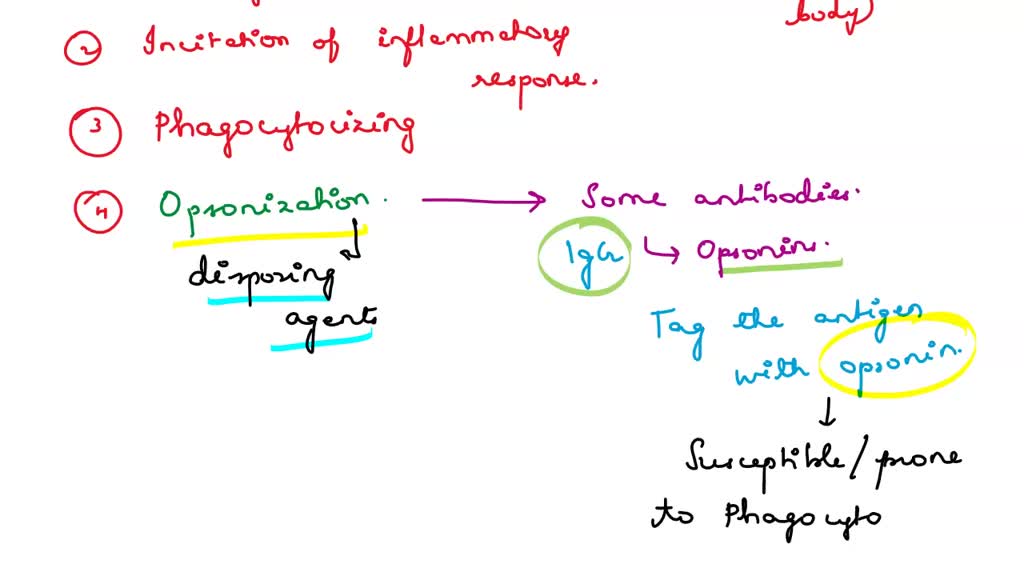 body)
② Incitation of inflammatory
response.
③ Phagocytocizing
④ Opsonization. → Some antibodies.
IgG ↳ Opsonins.
disposing
agents
Tag the antigen
with opsonin.
↓
Susceptible/prone
to Phagocyto